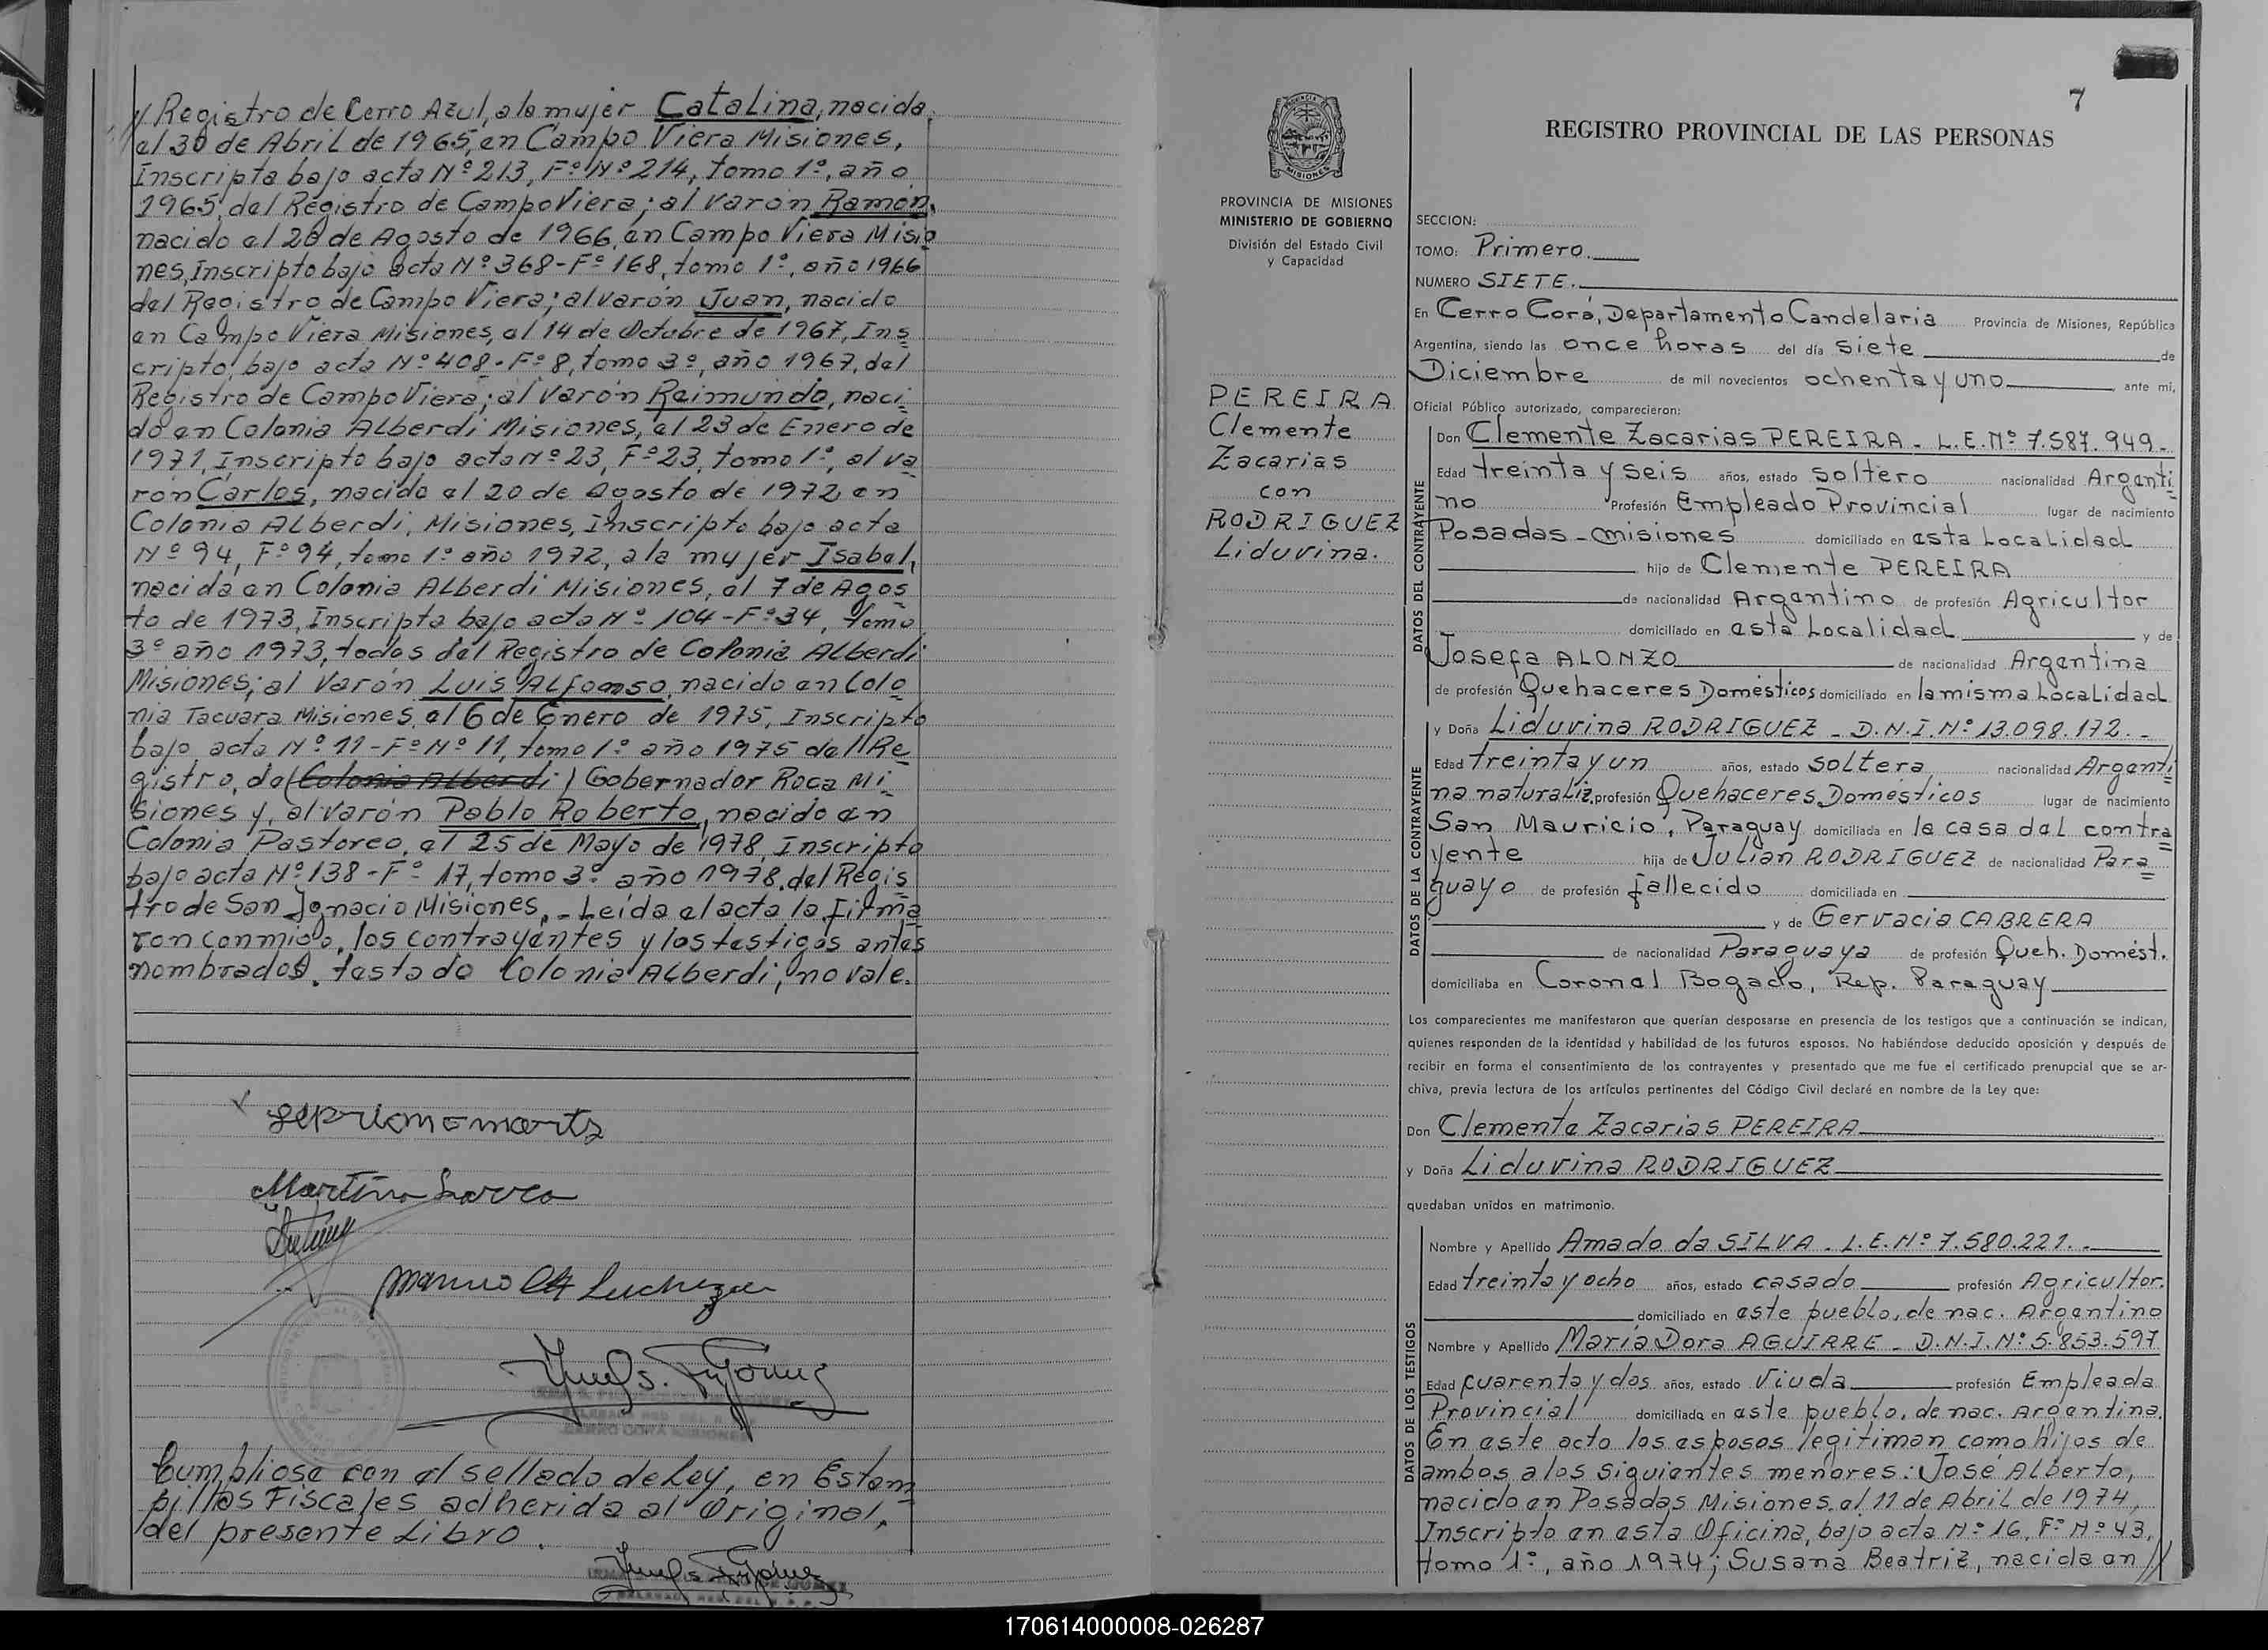 // Registro de Cerro Azul, a la mujer Catalina, nacida
el 30 de Abril de 1965, en Campo Viera Misiones,
Inscripta bajo acta Nº 213, Fº Nº 214, tomo 1º, año
1965, del Registro de Campo Viera; al varón Ramón,
nacido el 28 de Agosto de 1966, en Campo Viera Misio
nes, Inscripto bajo acta Nº 368 - Fº 168, tomo 1º, año 1966
del Registro de Campo Viera; al varón Juan, nacido
en Campo Viera Misiones, el 14 de Octubre de 1967, Ins
cripto, bajo acta Nº 408 - Fº 8, tomo 3º, año 1967, del
Registro de Campo Viera; al varón Raimundo, naci
do en Colonia Alberdi Misiones, el 23 de Enero de
1971, Inscripto bajo acta Nº 23, Fº 23, tomo 1º, al va
rón Carlos, nacido el 20 de Agosto de 1972, en
Colonia Alberdi, Misiones, Inscripto bajo acta
Nº 94, Fº 94, tomo 1º año 1972, a la mujer Isabel,
nacida en Colonia Alberdi Misiones, el 7 de Agos
to de 1973, Inscripta bajo acta Nº 104 - Fº 34, tomo
3º año 1973, todos del Registro de Colonia Alberdi
Misiones; al varón Luis Alfonso, nacido en Colo
nia Tacuara Misiones, el 6 de Enero de 1975, Inscripto
bajo acta Nº 11 - Fº Nº 11, tomo 1º año 1975 del Re
gistro, de (Colonia Alberdi) Gobernador Roca Mi
siones y, al varón Pablo Roberto, nacido en
Colonia Pastoreo, el 25 de Mayo de 1978, Inscripto
bajo acta Nº 138 - Fº 17, tomo 3º año 1978, del Regis
tro de San Ignacio Misiones. - Leída el acta la firma
ron conmigo, los contrayentes y los testigos antes
nombrados. testado Colonia Alberdi; no vale.
Cumpliose con el sellado de Ley, en Estam
pillas Fiscales adherida al Original,
del presente Libro.
7
REGISTRO PROVINCIAL DE LAS PERSONAS
PROVINCIA DE MISIONES
MINISTERIO DE GOBIERNO
División del Estado Civil
y Capacidad
PEREIRA
Clemente
Zacarias
con
RODRIGUEZ
Liduvina.
SECCION:
TOMO: Primero.
NUMERO SIETE.
En Cerro Corá, Departamento Candelaria Provincia de Misiones, República
Argentina, siendo las once horas del día siete de
Diciembre de mil novecientos ochenta y uno ante mi,
Oficial Público autorizado, comparecieron:
DATOS DEL CONTRAYENTE
Don Clemente Zacarias PEREIRA - L.E. Nº 7.587.949.-
Edad treinta y seis años, estado soltero nacionalidad Argenti
no Profesión Empleado Provincial lugar de nacimiento
Posadas - Misiones domiciliado en esta Localidad
hijo de Clemente PEREIRA
de nacionalidad Argentino de profesión Agricultor
domiciliado en esta Localidad y de
Josefa ALONZO de nacionalidad Argentina
de profesión Quehaceres Domésticos domiciliado en la misma Localidad
DATOS DE LA CONTRAYENTE
y Doña Liduvina RODRIGUEZ - D.N.I. Nº 13.098.172.-
Edad treinta y un años, estado soltera nacionalidad Argenti
na naturaliz. profesión Quehaceres Domésticos lugar de nacimiento
San Mauricio, Paraguay domiciliada en la casa del contra
yente hija de Julián RODRIGUEZ de nacionalidad Para
guayo de profesión fallecido domiciliada en
y de Gervacia CABRERA
de nacionalidad Paraguaya de profesión Queh. Domést.
domiciliaba en Coronel Bogado, Rep. Paraguay
Los comparecientes me manifestaron que querían desposarse en presencia de los testigos que a continuación se indican,
quienes responden de la identidad y habilidad de los futuros esposos. No habiéndose deducido oposición y después de
recibir en forma el consentimiento de los contrayentes y presentado que me fue el certificado prenupcial que se ar-
chiva, previa lectura de los artículos pertinentes del Código Civil declaré en nombre de la Ley que:
Don Clemente Zacarias PEREIRA
y Doña Liduvina RODRIGUEZ
quedaban unidos en matrimonio.
DATOS DE LOS TESTIGOS
Nombre y Apellido Amado da SILVA - L.E. Nº 7.580.221.-
Edad treinta y ocho años, estado casado profesión Agricultor.
domiciliado en este pueblo, de nac. Argentino
Nombre y Apellido María Dora AGUIRRE - D.N.I. Nº 5.853.597
Edad cuarenta y dos años, estado Viuda profesión Empleada
Provincial domiciliada en este pueblo, de nac. Argentina.
En este acto los esposos legitiman como Hijos de
ambos a los siguientes menores: José Alberto,
nacido en Posadas Misiones, el 11 de Abril de 1974,
Inscripto en esta Oficina, bajo acta Nº 16, Fº Nº 43,
tomo 1º, año 1974; Susana Beatriz, nacida en //
170614000008-026287